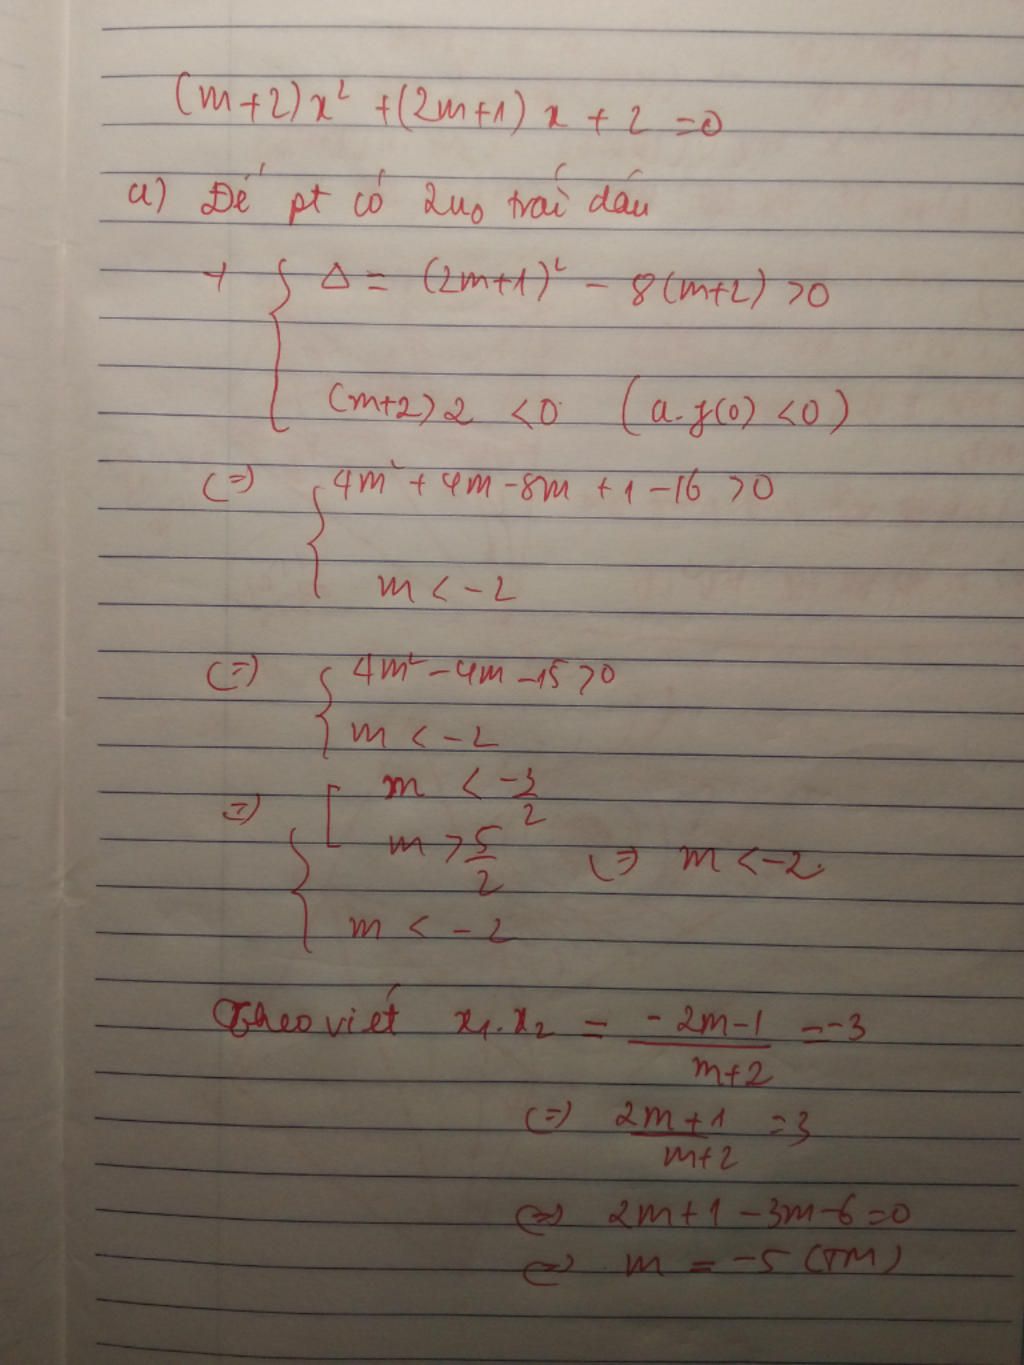 (m+2)x² + (2m+1)x + 2 = 0
a) Để pt có 2 n₀ trái dấu
+ { Δ = (2m+1)² - 8(m+2) > 0
(m+2)2 < 0 (a.f(0) < 0)
(=) { 4m² + 4m - 8m + 1 - 16 > 0
m < -2
(=) { 4m² - 4m - 15 > 0
m < -2
=) { [ m < -3/2
m > 5/2 (=) m < -2.
m < -2
Theo viét x₁.x₂ = (-2m-1)/(m+2) = -3
(=) (2m+1)/(m+2) = 3
(=) 2m+1 - 3m - 6 = 0
(=) m = -5 (TM)